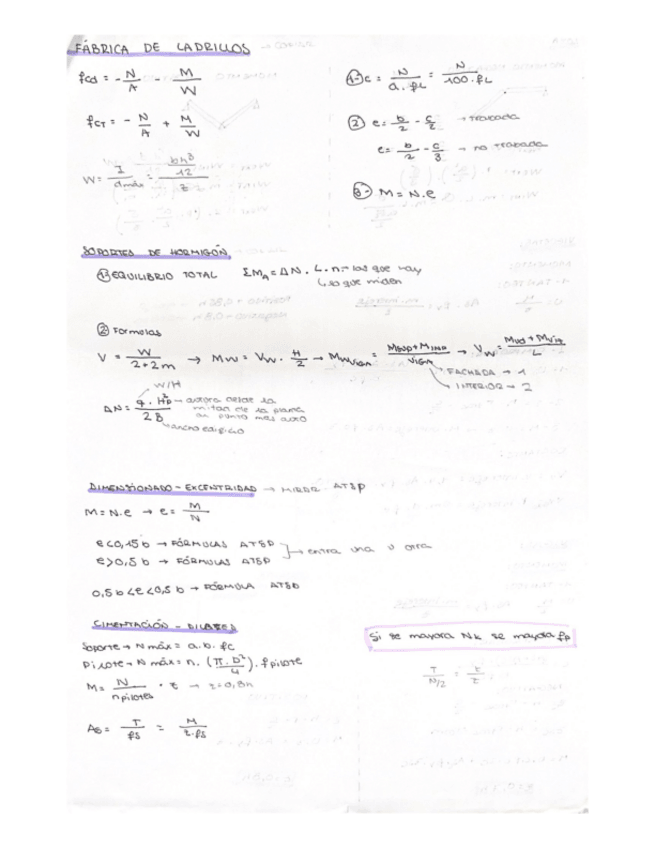 FÁBRICA DE LADRILLOS
fcd = - N/A - M/W
fCT = - N/A + M/W
W = I/dmáx = (bh³/12)/z
①- c = N/(a.fL) = N/(100.fL)
② e = b/2 - c/2 → trabada
e = b/2 - c/3 → no trabada
③- M = N.e
SOPORTES DE HORMIGÓN
① EQUILIBRIO TOTAL ΣMA = ΔN . L . n → las que hay
↳ lo que miden
② Formulas
V = W/(2+2m) → MW = VW . H/2 → MWVIGA = (MSUP + MINF)/VIGA → VW =
FACHADA → 1
INTERIOR → 2
W/H
ΔN = (q . Hp²)/(2B) → altura desde la mitad de la planta al punto más alto
↳ ancho edificio
DIMENSIONADO - EXCENTRIDAD → MIRAR AT&P
M = N.e → e = M/N
e<0,15b → FÓRMULAS AT&P
e>0,5b → FÓRMULAS AT&P
entra una u otra
0,5b<e<0,5b → FÓRMULA
CIMENTACIÓN -
Soporte → N máx = a.b.fc
Pilote → N máx = n . (π.D²/4) . fpilote
M = N/npilotes . z → z=0,8h
As = T/fs = M/z.fs
Si se mayora Nk se mayora fp
T/(N/2) =